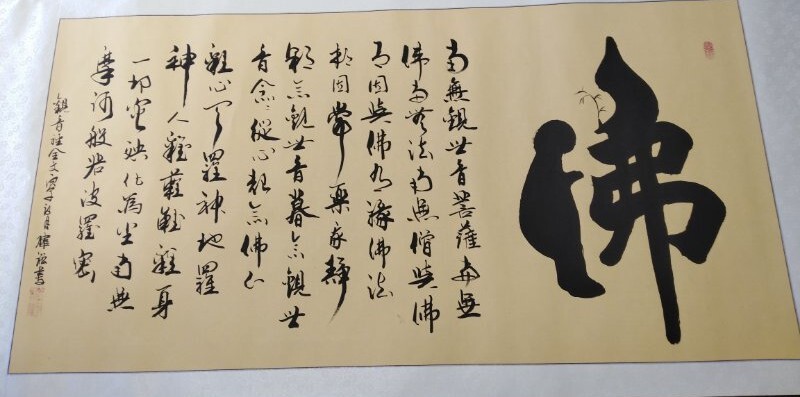 佛
南無觀世音菩薩南無
佛南無法南無僧與佛
有因與佛有緣佛法
相因常樂我靜
朝念觀世音暮念觀世
音念念從心起念佛不
離心天羅神地羅
神人離難難離身
一切灾殃化為尘南無
摩訶般若波羅密
觀音經全文